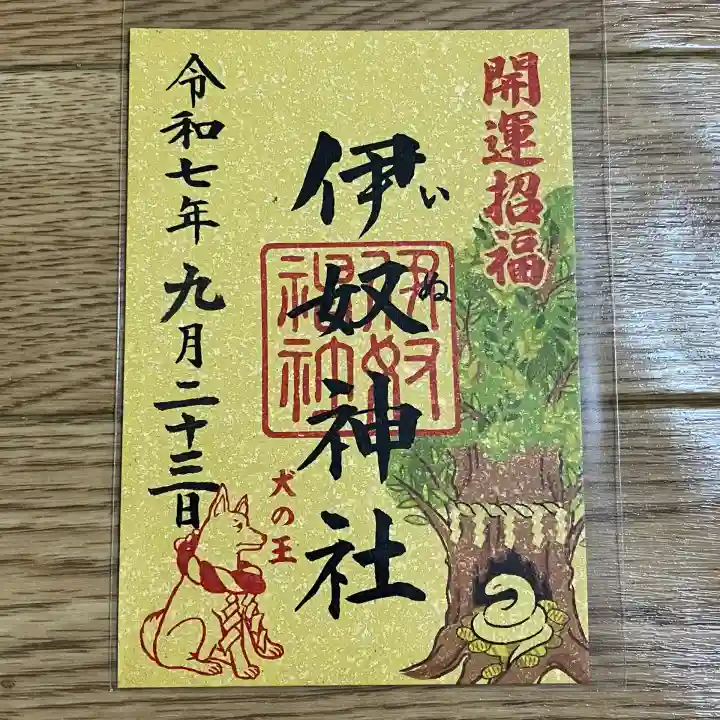 開運招福
伊奴神社
いぬ
伊奴
神社
犬の王
令和七年九月二十三日